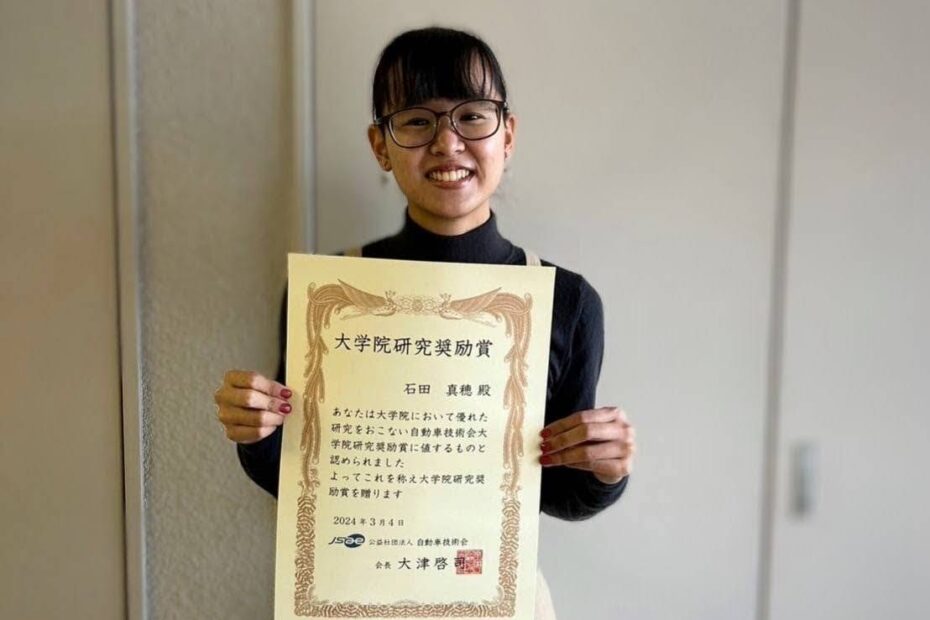 大学院研究奨励賞
石田　真穂 殿
あなたは大学院において優れた
研究をおこない自動車技術会大
学院研究奨励賞に値するものと
認められました
よってこれを称え大学院研究奨
励賞を贈ります
2024年3月4日
JSAE 公益社団法人 自動車技術会
会長 大津啓司